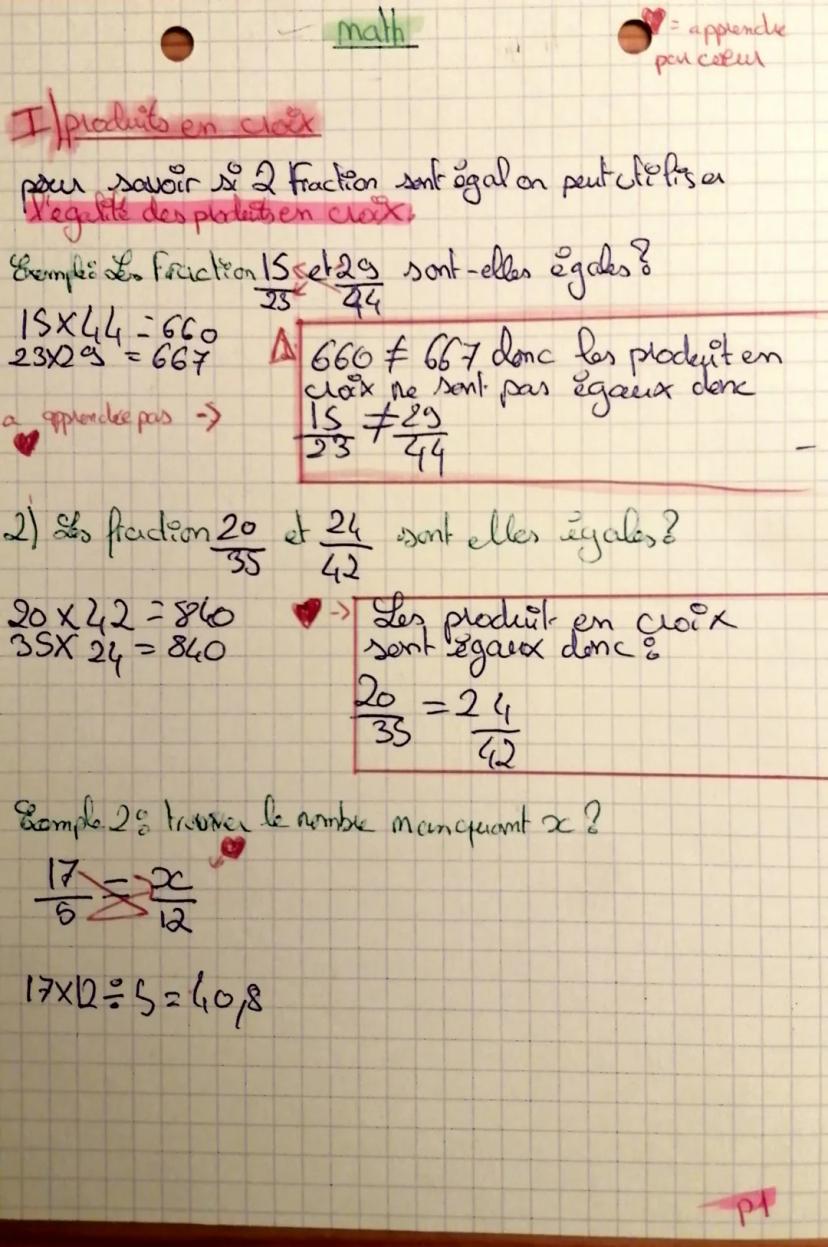 math
♥ = apprendre
par cœur
I) produits en croix
pour savoir si 2 fraction sont égal on peut utiliser
l'egalité des produits en croix.
Exemple: Les Fraction 15/23 et 29/44 sont-elles égales?
15×44 = 660
23×29 = 667
⚠ 660 ≠ 667 donc les produit en
croix ne sont pas égaux donc
15/23 ≠ 29/44
a apprendre pas ->
♥
2) Les fraction 20/35 et 24/42 sont elles égales?
20 × 42 = 840
35 × 24 = 840
♥ -> Les produit en croix
sont égaux donc:
20/35 = 24/42
Exemple 2: trouver le nombre manquant x?
♥
17/5 = x/12
17×12÷5 = 40,8
p1